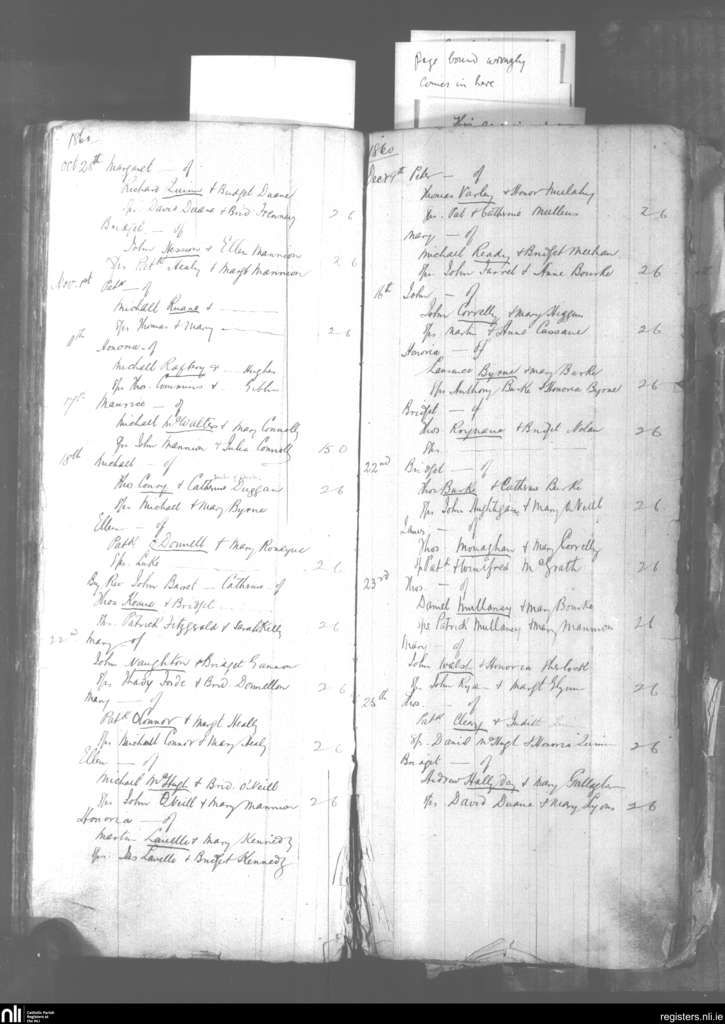 Page bound wrongly
comes in here
1860
Oct 28th Margaret — of
Richard Quinn & Bridget Duane
Sps David Duane & Brid 2-6
Bridget — of
John & Ellen Mannion
Sps Patk Healy & Margt Mannion 2 6
Nov. 1st Patk — of
Michael Ruane &
Sps Thomas & Mary 2-6
Honoria — of
Michael Raftery & Hughes
Sps Thos. Commins &
17th Maurice — of
Michael McWalter & Mary Connolly
Sps John Mannion & Julia Connolly 15 0
18th Michael — of
Thos Conry & Catherine Duggan 2-6
Sps Michael & Mary Byrne
Ellen — of
Patk O'Donnell & Mary Ronayne
Sps Luke 2 6
By Rev John — Catherine of
Thos & Bridget
Sps. Patrick Fitzgerald & Sarah Kelly 2 6
22nd Mary of
John Naughton & Bridget Gannon
Sps Thady Forde & Brid Donnellan 2 6
Mary — of
Patk Connor & Margt Healy
Sps Michael Connor & Mary Healy 2 6
Ellen — of
Michael McHugh & Brid. O'Neill
Sps John O'Neill & Mary Mannion 2-6
Honoria — of
Martin Lavelle & Mary Kennedy
Sps Jas Lavelle & Bridget Kennedy
1860
Decr 9th Peter — of
Thomas Varley & Honor Mulahy
Sps. Pat & Catherine Mullins 2-6
Mary — of
Michael Ready & Bridget Meehan
Sps John Farrel & Anne Bourke 2 6
16th John — of
John Correlly & Mary Higgins
Sps Martin & Anne 2 6
Honoria — of
Laurence Byrne & Mary Burke
Sps Anthony Burke & Honoria Byrne 2 6
Bridget — of
Thos & Bridget Nolan 2 6
Sps
22nd Bridget — of
Thos Burke & Catherine Burke
Sps John & Mary 2 6
James — of
Thos Monaghan & Mary Correlly
Sp Patk & Winifred McGrath 2 6
23rd Thos — of
Daniel Mullaney & Mary Bourke
Sps Patrick Mullaney & Mary Mannion 2 6
Mary — of
John Walsh & Honoria
Sps John Ryan & Margt Glynn 2 6
25th Thos — of
Patk Cleary & Judith
Sp. Daniel McHugh & Honoria Quinn 2 6
Bridget — of
Andrew Hallyday & Mary Gallagher
Sps David Duane & Mary Lyons 2 6
nli
Catholic Parish
Registers at
the NLI
registers.nli.ie